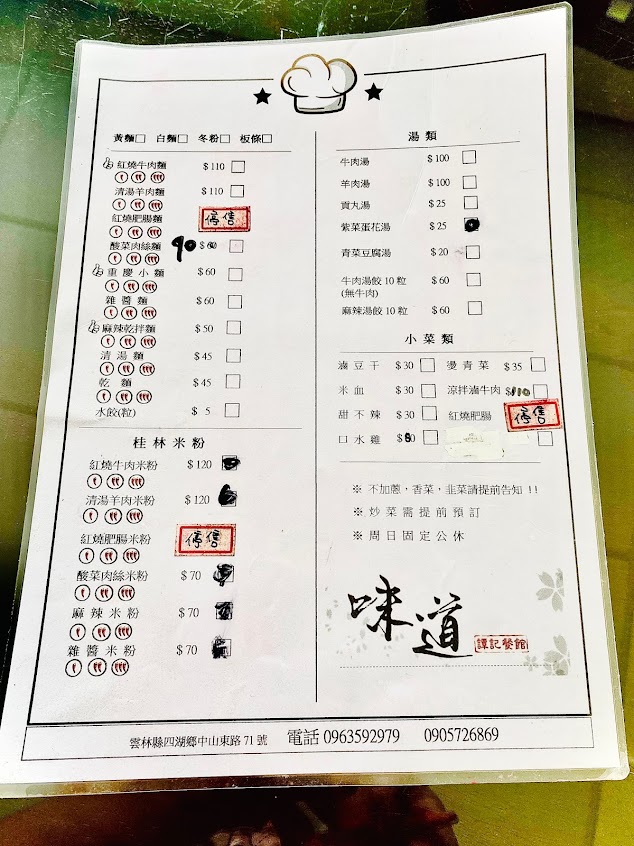 黃麵□ 白麵□ 冬粉□ 板條□
紅燒牛肉麵 $110 □
清湯羊肉麵 $110 □
紅燒肥腸麵 停售
酸菜肉絲麵 90 $60 □
重慶小麵 $60 □
雜醬麵 $60 □
麻辣乾拌麵 $50 □
清湯麵 $45 □
乾麵 $45 □
水餃(粒) $ 5 □
桂林米粉
紅燒牛肉米粉 $120
清湯羊肉米粉 $120
紅燒肥腸米粉 停售
酸菜肉絲米粉 $70
麻辣米粉 $70
雜醬米粉 $70
湯類
牛肉湯 $100 □
羊肉湯 $100 □
貢丸湯 $25 □
紫菜蛋花湯 $25
青菜豆腐湯 $20 □
牛肉湯餃10粒 $60 □
(無牛肉)
麻辣湯餃10粒 $60 □
小菜類
滷豆干 $30 □ 燙青菜 $35 □
米血 $30 □ 涼拌滷牛肉 $110 □
甜不辣 $30 □ 紅燒肥腸 停售
口水雞 □
※ 不加蔥,香菜,韭菜請提前告知 !!
※ 炒菜需提前預訂
※ 周日固定公休
味道
譚記餐館
雲林縣四湖鄉中山東路 71 號 電話 0963592979 0905726869